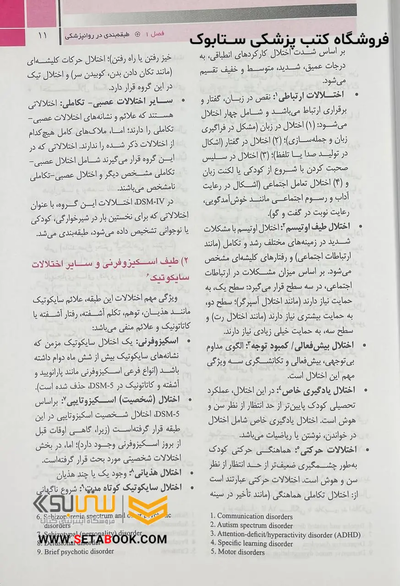 فروشگاه کتب پزشکی ستابوک
فصل ۱ طبقه‌بندی در روانپزشکی ۱۱
بر اساس شدت اختلال کارکردهای انطباقی، به
درجات عمیق، شدید، متوسط و خفیف تقسیم
می‌شود.
• اختـلالات ارتباطی¹: نقص در زبـان، گفتار و
برقراری ارتباط می‌باشـد و شـامل چهار اختلال
می‌شود: (۱) اختلال در زبان (مشکل در فراگیری
زبان و جمله‌سازی)؛ (۲) اختلال در گفتار (اشکال
در تولید صدا یـا تلفظ)؛ (۳) اختلال در سلیس
صحبت کردن با شروع از کودکی یا لکنت زبان
و (۴) اختلال تعامل اجتماعی (اشکال در رعایت
آداب و رسـوم اجتماعی ماننـد خوش‌آمدگویی،
رعایت نوبت در گفت و گو).
• اختلال طیف اوتیسم²: اختلال اوتیسم با مشکلات
شدید در زمینه‌های مختلف رشد و تکامل (مانند
ارتباطات اجتماعی) و رفتارهای کلیشه‌ای مشخص
می‌شود. بر اساس میزان مشکلات در ارتباطات
اجتماعی، در سه سطح قرار می‌گیرد: سطح یک، به
حمایت نیاز دارند (مانند اختلال آسپرگر)؛ سطح دو،
به حمایت بیشتری نیاز دارند (مانند اختلال رت) و
سطح سه، به حمایت خیلی زیادی نیاز دارند.
• اختلال بیش‌فعالی/ کمبود توجه³: الگوی مداوم
بی‌توجهی، بیش‌فعالی و تکانشـگری سـه ویژگی
مهم این اختلال است.
• اختلال یادگیری خاص⁴: در این اختلال، عملکرد
تحصیلی کودک پایین‌تر از حد انتظار از نظر سن و
هوش است. اختلال یادگیری خاص شامل اختلال
در خواندن، نوشتن یا ریاضیات می‌باشد.
• اختلالات حرکتی⁵: هماهنگـی حرکتی کودک
به‌طور چشـمگیری ضعیف‌تـر از حد انتظار از نظر
سن و هوش است. اختلالات حرکتی عبارتند است
از: اختلال تکاملی هماهنگی (مانند تأخیر در سینه
1. Communication disorders
2. Autism spectrum disorder
3. Attention-deficit/hyperactivity disorder (ADHD)
4. Specific learning disorder
5. Motor disorders
خیز رفتن یا راه رفتن)؛ اختلال حرکات کلیشـه‌ای
(مانند تکان دادن بدن، کوبیدن سر) و اختلال تیک
در این گروه قرار دارد.
• سـایر اختلالات عصبی- تکاملی: اختلالاتی
هسـتند که علائم و نشانه‌های اختلالات عصبی-
تکاملی را دارند؛ امـا، ملاک‌های کامل هیچ‌کدام
از اختلالات ذکر شده را ندارند. اختلالاتی که در
این گروه قرار می‌گیرند شـامل اختلال عصبی-تکاملی
تکاملی مشخص دیگر و اختلال عصبی-تکاملی
نامشخص می‌باشند.
در DSM-IV، اختلالات این گـروه، با عنوان
اختلالاتی که برای نخستین بار در شیرخوارگی، کودکی
یا نوجوانی تشخیص داده می‌شود، طبقه‌بندی می‌شد.
۲) طیف اسـکیزوفرنی و سـایر اختلالات
سایکوتیک⁶
ویژگی مهم اختلالات این طبقه، علایم سایکوتیک
مانند هذیـان، توهم، تکلم آشـفته، رفتار آشـفته یا
کاتاتونیک و علائم منفی می‌باشد:
• اسکیزوفرنی: یک اختلال سـایکوتیک مزمن که
نشانه‌های سایکوتیک بیش از شش ماه دوام داشته
باشـد (انواع فرعی اسکیزوفرنی مانند پارانویید و
آشفته و کاتاتونیک در DSM-5، حذف شده است).
• اختلال (شـخصیت) اسـکیزوتایپی⁷: براساس
DSM-5، اختلال شـخصیت اسـکیزوتایپی در این
طبقه قرار گرفته‌اسـت (زیرا، گاهی اوقات قبل
از بروز اسـکیزوفرنی وجود دارد)؛ اما، در بخش
اختلالات شخصیتی مورد بحث قرار گرفته‌است.
• اختلال هذیانی⁸: وجود یک یا چند هذیان
• اختلال سایکوتیک کوتاه مدت⁹: شروع ناگهانی
6. Schizophrenia spectrum and other psychotic
disorders
7. Schizotypal (personality) disorder
8. Delusional disorder
9. Brief psychotic disorder
ستابوک
فروشگاه اینترنتی کتاب
WWW.SETABOOK.COM